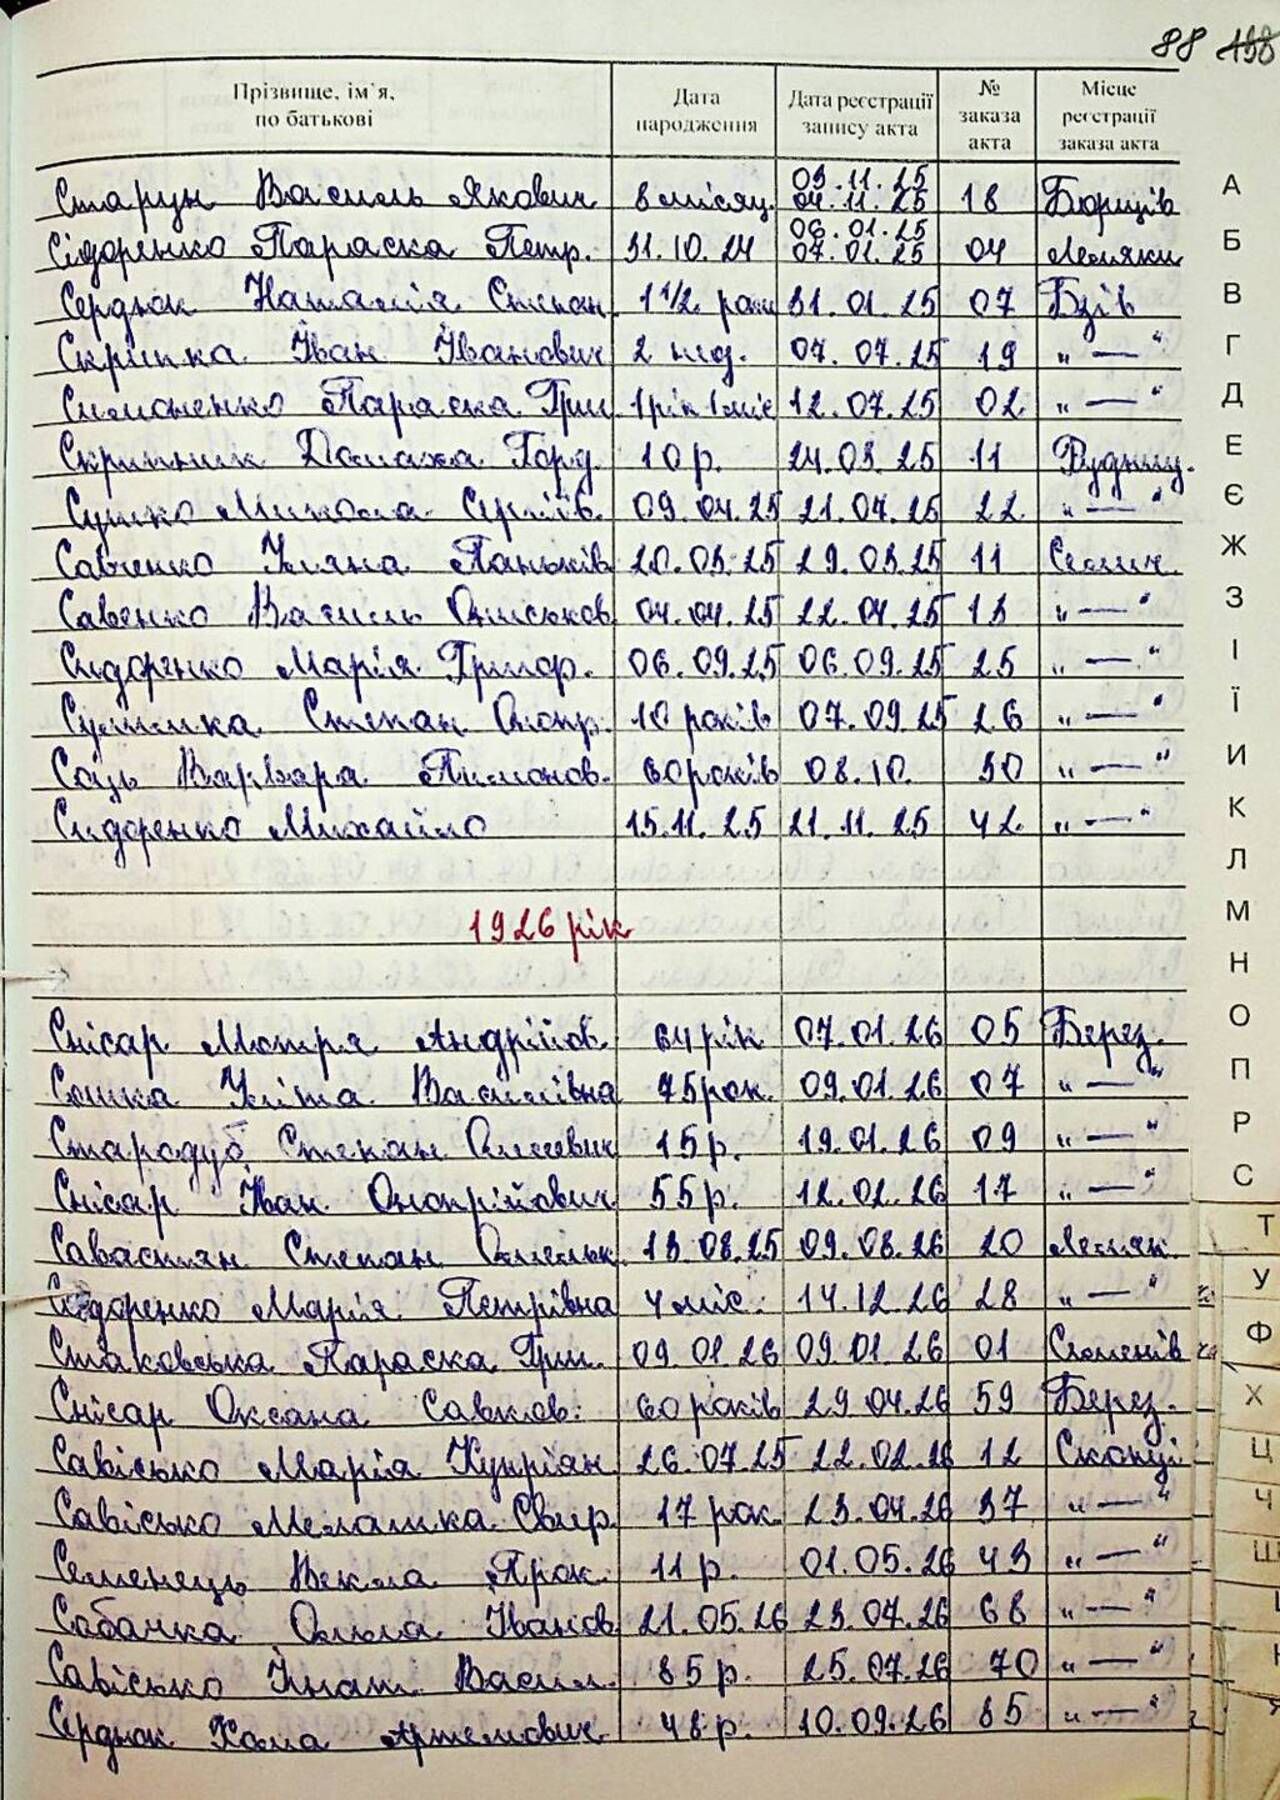 88 198
Прізвище, ім'я, по батькові Дата народження Дата реєстрації запису акта № заказа акта Місце реєстрації заказа акта
Старун Василь Якович 8 місяц. 03.11.25 04.11.25 18 Борщів
Сідоренко Параска Петр. 31.10.24 06.01.25 07.01.25 04 Лемяки
Сердюк Наталія Степан. 1 1/2 роки 31.01.25 07 Бзів
Скрипка Іван Іванович 2 нед. 07.07.25 19 „—“
Симоненко Параска Гри 1 рік 1 міс 12.07.25 02 „—“
Скрипник Домаха Горд. 10 р. 24.03.25 11 Рудниц.
Сушко Микола Сергіїв. 09.04.25 21.04.25 22 „—“
Савченко Уляна Паньків 20.03.25 29.03.25 11 Селич.
Савенко Василь Ониськов 04.04.25 22.04.25 13 „—“
Сидоренко Марія Григор. 06.09.25 06.09.25 25 „—“
Сулимка Степан Онопр. 10 років 07.09.25 26 „—“
Соць Варвара Пилипов. 60 років 08.10. 30 „—“
Сидоренко Михайло 15.11.25 21.11.25 42 „—“
1926 рік
Снісар Мотря Андріїв. 64 рік 07.01.26 05 Берез.
Сошка Уліта Василівна 75 рок. 09.01.26 07 „—“
Стародуб Степан Олиевич 15 р. 19.01.26 09 „—“
Снісар Іван Онопрійович 55 р. 12.02.26 17 „—“
Савастян Степан Омельк. 13.08.25 09.08.26 20 Лемяк.
Сидоренко Марія Петрівна 4 міс. 14.12.26 28 „—“
Стаковська Параска Гри. 09.01.26 09.01.26 01 Семенів
Снісар Оксана Савков. 60 років 29.04.26 59 Берез.
Савісько Марія Купріян. 26.07.25 22.02.26 12 Скопці
Савісько Мелашка Свир. 17 рок. 23.04.26 37 „—“
Семенець Векла Прок. 11 р. 01.05.26 43 „—“
Собачка Ольга Іванов. 21.05.26 23.07.26 68 „—“
Савісько Ігнат Васил. 85 р. 25.07.26 70 „—“
Сердюк Хома Артемович 48 р. 10.09.26 85 „—“
А
Б
В
Г
Д
Е
Є
Ж
З
І
Ї
И
К
Л
М
Н
О
П
Р
С
Т
У
Ф
Х
Ц
Ч
Ш